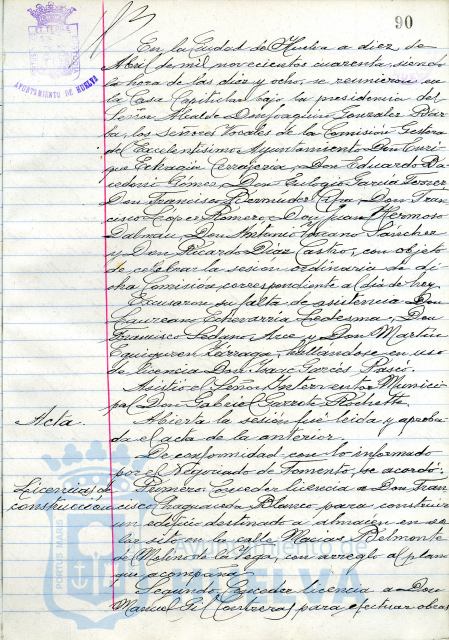 90
AYUNTAMIENTO DE HUELVA
En la Ciudad de Huelva a diez de
Abril de mil novecientos cuarenta, siendo
la hora de las diez y ocho, se reunieron en
la Casa Capitular bajo la presidencia del
Señor Alcalde Don Joaquin Gonzalez
los Señores Vocales de la Comisión Gestora
del Excelentisimo Ayuntamiento Don Enri-
que Don Eduardo
Gómez, Don Eulogio Garcia
Don Francisco Bermudez Don Fran-
cisco Lopez Romero, Don Juan Hermoso
Dalmau, Don Antonio Sánchez
y Don Ricardo Diaz Castro, con objeto
de celebrar la sesión ordinaria de di-
cha Comisión, correspondiente al día de hoy.
Excusaron su falta de asistencia Don
Laureano Echevarria Ledesma, Don
Francisco Sedano Arce y Don Martin
hallandose en uso
de licencia Don Garcés
Asistió el Señor Interventor Munici-
pal Don Gabriel Garrote
Acta. Abierta la sesión fué leida y aproba-
da el acta de la anterior.
De conformidad con lo informado
por el Negociado de Fomento, se acordó:
Licencias de Primero. Conceder licencia a Don Fran-
construcción cisco Blanco para construir
un edificio destinado a almacén en so-
lar sito en la calle Macias Belmonte
de Molino de la Vega, con arreglo al plano
que acompaña.
Segundo. Conceder licencia a Don
Manuel Gil Contreras para efectuar obras
PORTUS MARIS
HUELVA